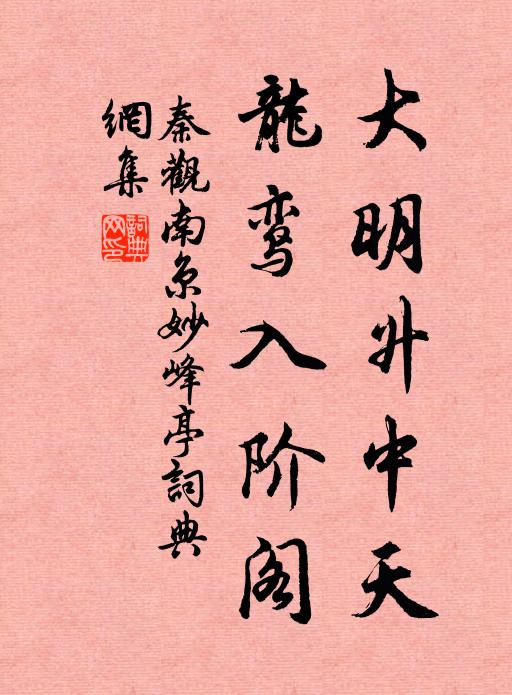 大明升中天
龍鸾入阶阁
秦觀南京妙峰亭詞典
網集
詞典
网印